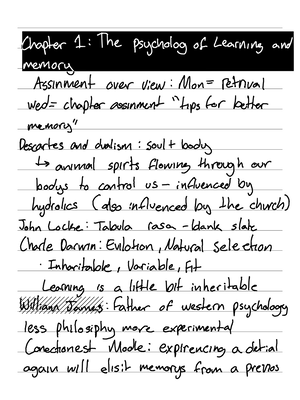 Chapter 1: The psycholog of Learning and
memory
Assinment over view: Mon= retrival
wed= chapter assinment "tips for better
memory"
Descartes and dualism: soul + body
↳ animal spirts flowing through our
bodys to control us – influenced by
hydrolics (also influenced by the church)
John Locke: Tabula rasa - blank slate
Charle Darwin: Evlotion, Natural Selection
· Inharitable, Variable, Fit
Learning is a little bit inheritable
William James: Father of western psychology
less philosiphy more experimental
Conectionest Modle: expirencing a detial
again will elisit memorys from a previos